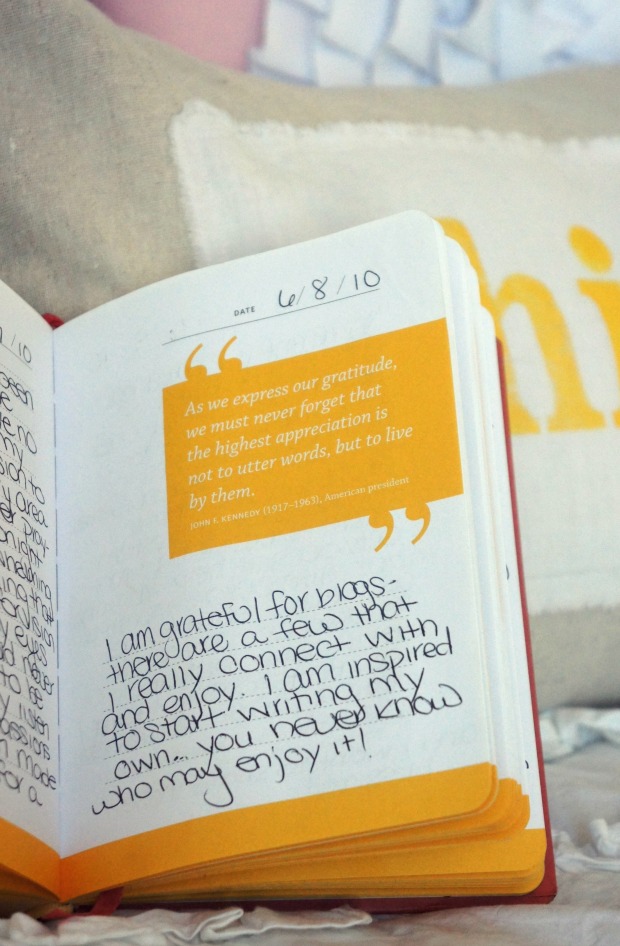 /10
no
my
to
area
tonight
that
eyes
never
to be
listen
passions
made
for a
DATE 6/8/10
“
As we express our gratitude,
we must never forget that
the highest appreciation is
not to utter words, but to live
by them.
JOHN F. KENNEDY (1917–1963), American president
”
I am grateful for blogs-
there are a few that
I really connect with
and enjoy. I am inspired
to start writing my
own... you never know
who may enjoy it!
hi